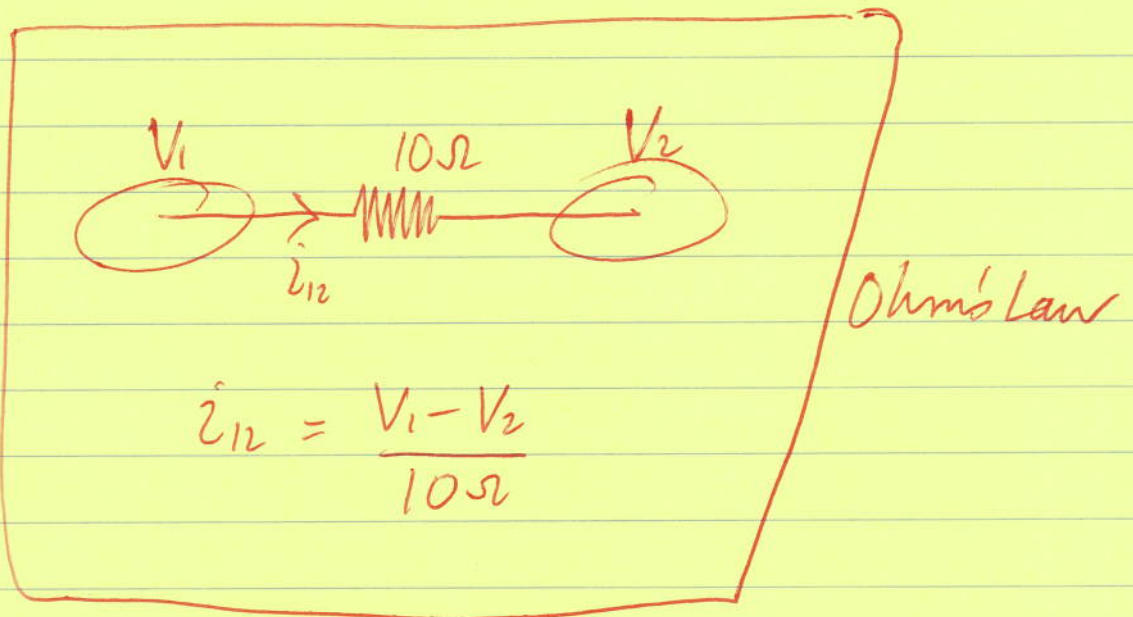 V₁ 10Ω V₂
i₁₂
Ohm's Law
i₁₂ = (V₁ - V₂) / 10Ω